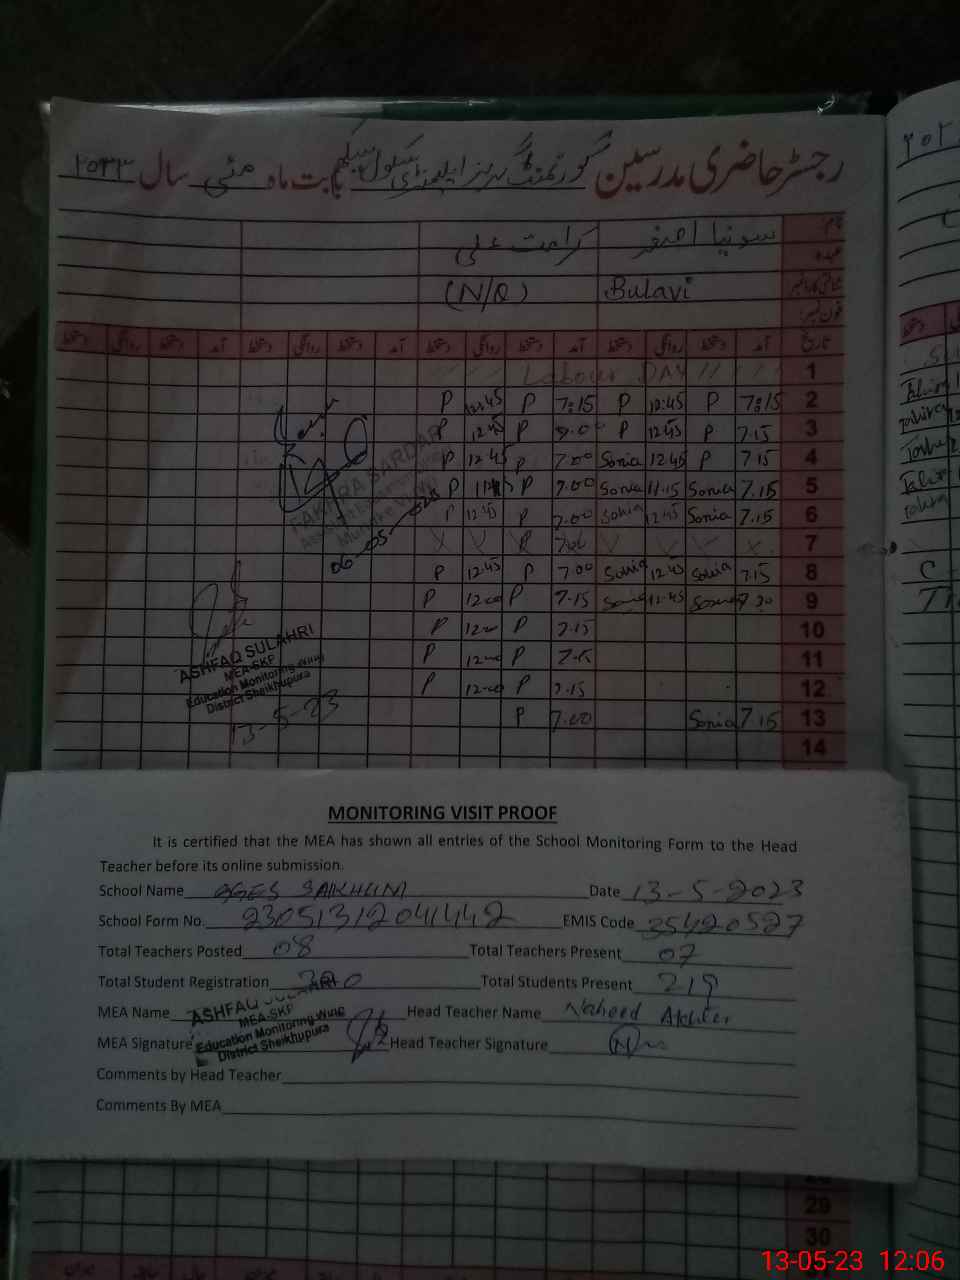 رجسٹر حاضری مدرسین گورنمنٹ گرلز ایلیمنٹری سکول بابت ماہ مئی سال ۲۰۲۳
نام سونیا اصغر کرامت علی
عہدہ
شناختی کارڈ نمبر Bulavi (N/Q)
فون نمبر:
تاریخ آمد دستخط روانگی دستخط آمد دستخط روانگی دستخط آمد دستخط روانگی دستخط آمد دستخط روانگی دستخط
Labour DAY 1
P 12:45 P 7:15 P 12:45 P 7:15 2
P 12:45 P 7.00 P 12:45 P 7.15 3
P 12:45 P 7.00 Sonia 12:45 P 7.15 4
P P 7.00 Sonia 11.15 Sonia 7.15 5
P 12:45 P 7.00 Sonia 12:45 Sonia 7.15 6
P 7.00 7
P 12.45 P 7.00 Sonia 12.45 Sonia 7.15 8
P 12.00 P 7.15 Sonia 12.45 Sonia 7.30 9
P 12.00 P 7.15 10
P 12.00 P 7.15 11
P 12.00 P 7.15 12
P 7.00 Sonia 7.15 13
14
FAKHRA SARDAR
06-05-2023
ASHFAQ SULAHRI
MEA-SKP
Education Monitoring Wing
District Sheikhupura
13-5-23
MONITORING VISIT PROOF
It is certified that the MEA has shown all entries of the School Monitoring Form to the Head
Teacher before its online submission.
School Name GGES SAIKHUM Date 13-5-2023
School Form No. 23051312041442 EMIS Code 35420527
Total Teachers Posted 08 Total Teachers Present 07
Total Student Registration Total Students Present 219
MEA Name ASHFAQ SULAHRI Head Teacher Name Naheed Akhter
MEA-SKP
Education Monitoring Wing
MEA Signature District Sheikhupura Head Teacher Signature
Comments by Head Teacher
Comments By MEA
29
30
13-05-23 12:06